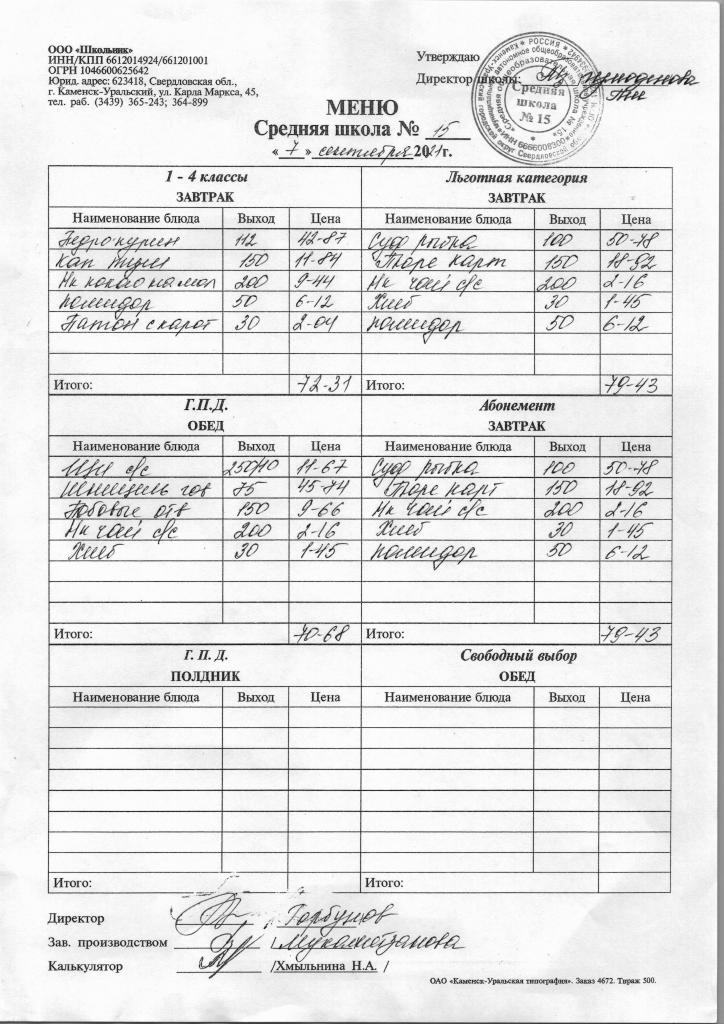 ООО «Школьник»
ИНН/КПП 6612014924/661201001
ОГРН 1046600625642
Юрид. адрес: 623418, Свердловская обл.,
г. Каменск-Уральский, ул. Карла Маркса, 45,
тел. раб. (3439) 365-243; 364-899
Утверждаю
Директор школы:
Средняя
школа
№ 15
МЕНЮ
Средняя школа № 15
« 7 » сентября 2021г.
1 - 4 классы
ЗАВТРАК
Наименование блюда Выход Цена
112 42-87
Кап туш 150 11-84
Нк какао на мол 200 9-44
помидор 50 6-12
Батон с карот 30 2-04
Итого: 72-31
Льготная категория
ЗАВТРАК
Наименование блюда Выход Цена
Суф рыбка 100 50-78
Пюре карт 150 18-92
Нк чай с/с 200 2-16
Хлеб 30 1-45
помидор 50 6-12
Итого: 79-43
Г.П.Д.
ОБЕД
Наименование блюда Выход Цена
Щи с/с 250/10 11-67
Шницель гов 75 45-74
Бобовые отв 150 9-66
Нк чай с/с 200 2-16
Хлеб 30 1-45
Итого: 70-68
Абонемент
ЗАВТРАК
Наименование блюда Выход Цена
Суф рыбка 100 50-78
Пюре карт 150 18-92
Нк чай с/с 200 2-16
Хлеб 30 1-45
помидор 50 6-12
Итого: 79-43
Г. П. Д.
ПОЛДНИК
Наименование блюда Выход Цена
Итого:
Свободный выбор
ОБЕД
Наименование блюда Выход Цена
Итого:
Директор Горбунов
Зав. производством
Калькулятор /Хмыльнина Н.А. /
ОАО «Каменск-Уральская типография». Заказ 4672. Тираж 500.